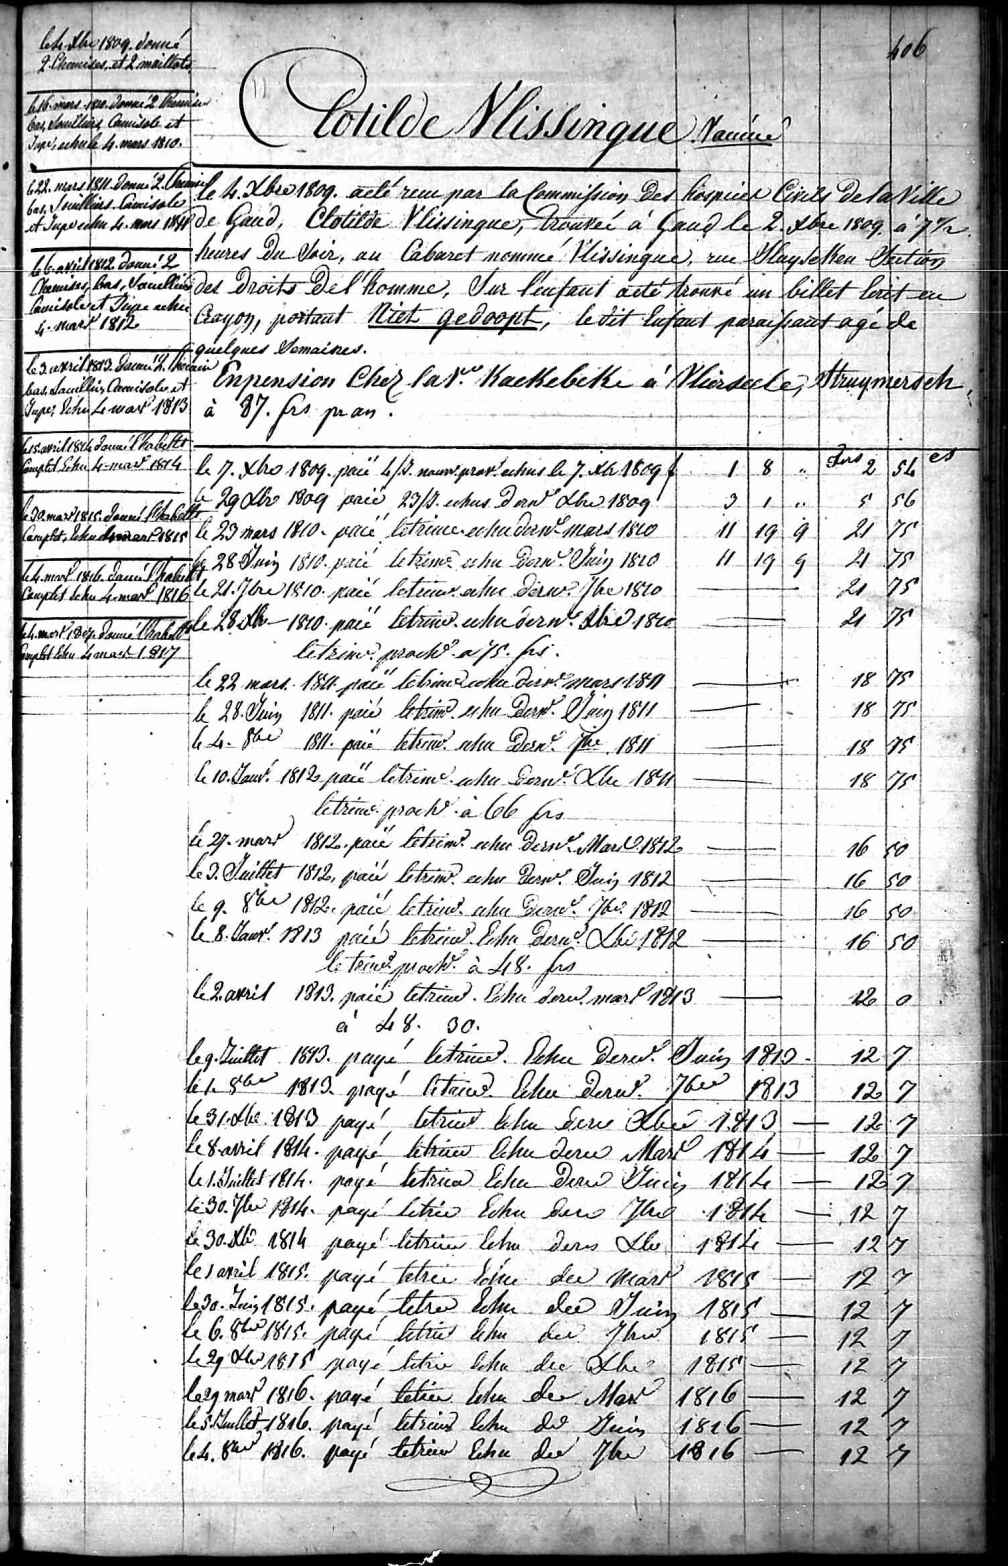 406
Clotilde Vlissingue Vacciné
le 4. Xbre 1809. donné
2 Chemises et 2 maillots
le 16. mars 1810. donné 2 Chemises
bas, Souilliers, Camisole et
Jupe, echu le 4. mars 1810.
le 22. mars 1811. donné 2. Chemises
bas, Souilliers, Camisole
et Jupe echu 4. mars 1811
le 6. avril 1812 donné 2
Chemises, bas, Souilliers
Camisole et Jupe echu
4. mars 1812
le 3. avril 1813. donné 2. Chemises
bas, Souilliers, Camisole, et
Jupe, Echu 4. mars 1813
le 15. avril 1814 donné l'habillt
Complet Echu 4. mars 1814
le 30. mars 1815. donné l'habillt
Complet, Echu 4 mars 1815
le 4. mars 1816. donné l'habillt
Complet Echu 4. mars 1816
le 4. mars 1817. donné l'habillt
Complet Echu 4 mars 1817
le 4. Xbre 1809. acté reçu par la Commission des hospices Civils de la Ville
de Gand, Clotilde Vlissingue, trouvée à Gand le 2. Xbre 1809. à 7 1/2
heures du Soir, au Cabaret nommé Vlissingue, rue Section
des droits de l'homme, Sur l'enfant acté trouvé un billet écrit en
Crayon, portant Niet gedoopt, le dit Enfant paraissant agé de
quelques Semaines.
En pension Chez la Ve Kaekebeke à Vlierseele, Struymersch
à 87. frs pr an.
le 7. Xbre 1809. paié 4/J. nourr. prov. echus le 7. Xbre 1809 f 1 8 .. frs 2 54 cs
le 29 Xbre 1809 paié 23/J. echus dernr Xbre 1809 3 1 .. 5 56
le 23 mars 1810. paié le trime echu dernr mars 1810 11 19 9 21 75
le 28 Juin 1810. paié le trime echu dernr Juin 1810 11 19 9 21 75
le 21. 7bre 1810. paié le trime echu dernr 7bre 1810 — 21 75
le 28. Xbre 1810. paié le trime echu dernr Xbre 1810 — 21 75
le trime prochn à 75. frs.
le 22 mars. 1811. paié le trime echu dernr mars 1811 — 18 75
le 28. Juin 1811. paié le trime echu dernr Juin 1811 — 18 75
le 4. 8bre 1811. paié le trime echu dernr 7bre 1811 — 18 75
le 10. Janvr 1812 paié le trime echu dernr Xbre 1811 — 18 75
le trime prochn à 66 frs
le 27. mars 1812. paié le trime echu dernr Mars 1812 — 16 50
le 3. Juillet 1812, paié le trime echu dernr Juin 1812 — 16 50
le 9. 8bre 1812. paié le trime echu dernr 7bre 1812 — 16 50
le 8. Janvr 1813 paié le trime Echu dernr Xbre 1812 — 16 50
le trime prochn à 48. frs
le 2 avril 1813. paié le trime Echu dernr mars 1813 — 12 0
à 48. 30.
le 9. Juillet 1813. payé le trime Echu dernr Juin 1813 - 12 7
le 1. 8bre 1813. payé le trime Echu dernr 7bre 1813 12 7
le 31. Xbre 1813 payé le trime Echu dern Xbre 1813 — 12 7
le 8 avril 1814. payé le trime Echu dern Mars 1814 — 12 7
le 1. Juillet 1814. payé le trime Echu dern Juin 1814 — 12 7
le 30. 7bre 1814. payé le trie Echu dern 7bre 1814 — 12 7
le 30. Xbre 1814 payé le trim Echu dern Xbre 1814 — 12 7
le 1 avril 1815. payé le trie Echu der mars 1815 — 12 7
le 30. Juin 1815. payé le tre Echu der Juin 1815 — 12 7
le 6. 8bre 1815. payé le trie Echu der 7bre 1815 — 12 7
le 29 Xbre 1815 payé le trie Echu der Xbre 1815 — 12 7
le 29 mars 1816. payé le trie Echu der Mars 1816 — 12 7
le 5. Juillet 1816. payé le trim Echu der Juin 1816 — 12 7
le 4. 8bre 1816. payé le trim Echu der 7bre 1816 — 12 7